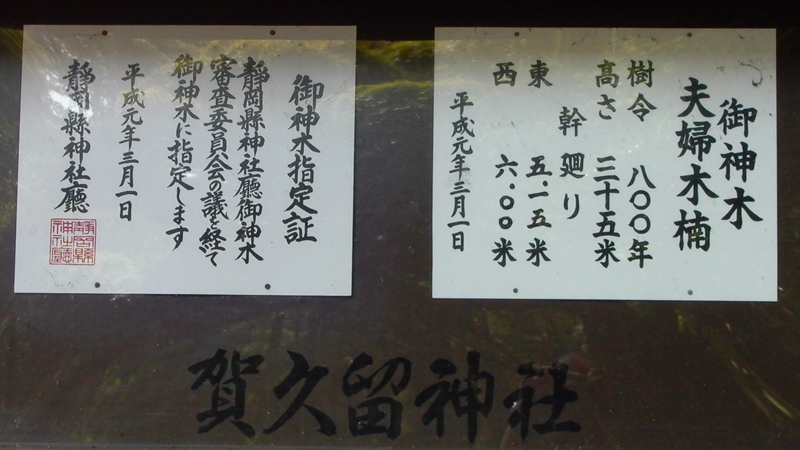 御神木
夫婦木楠
樹令 八〇〇年
高さ 三十五米
幹廻り
東 五.一五米
西 六.〇〇米
平成元年三月一日
御神木指定証
静岡縣神社廳御神木
審査委員会の議を経て
御神木に指定します
平成元年三月一日
静岡縣神社廳
賀久留神社